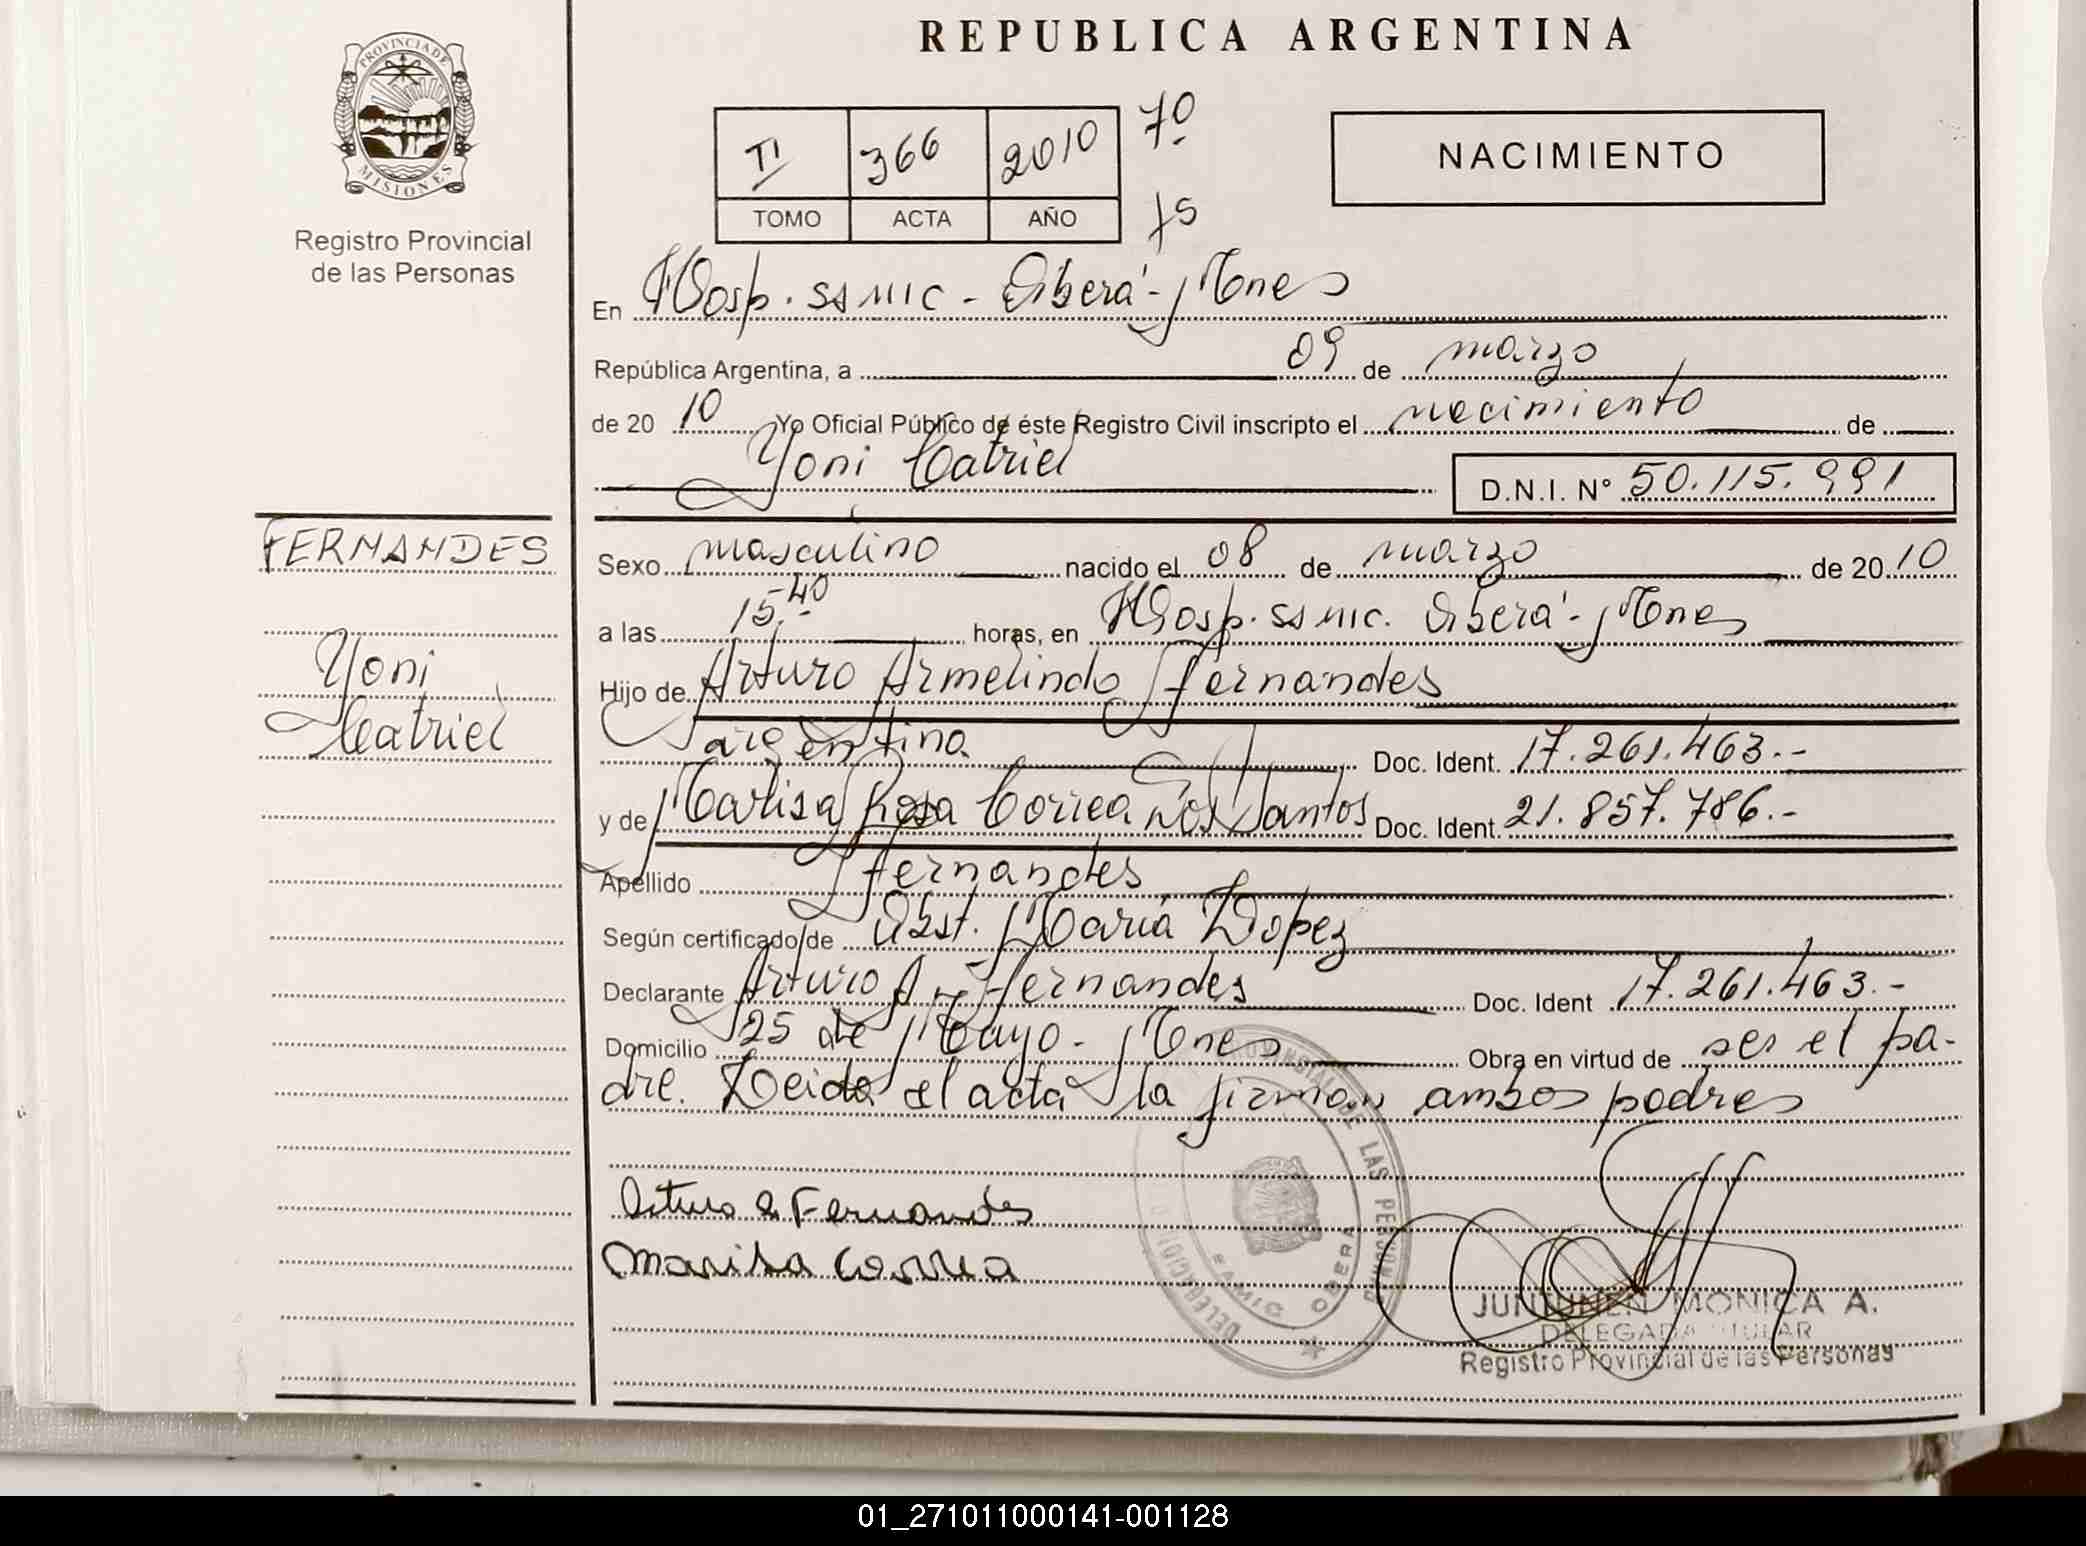 REPUBLICA ARGENTINA
PROVINCIA DE MISIONES
Registro Provincial
de las Personas
TI 366 2010 7º
TOMO ACTA AÑO
NACIMIENTO
En Hosp. SAMIC - Oberá - Mnes
República Argentina, a 09 de marzo
de 20 10 Yo Oficial Público de éste Registro Civil inscripto el nacimiento de
Yoni Catriel
D.N.I. Nº 50.115.991
FERNANDES
Yoni
Catriel
Sexo masculino nacido el 08 de marzo de 2010
a las 15.40 horas, en Hosp. SAMIC. Oberá - Mnes
Hijo de Arturo Armelindo Fernandes
argentino Doc. Ident. 17.261.463.-
y de Marisa Rosa Correa Dos Santos Doc. Ident. 21.857.786.-
Apellido Fernandes
Según certificado de Obst. María Lopez
Declarante Arturo A. Fernandes Doc. Ident 17.261.463.-
Domicilio 25 de Mayo - Mnes Obra en virtud de ser el pa-
dre. Leida el acta la firman ambos padres
Arturo A Fernandes
Marisa Correa
PROVINCIAL DE LAS PERSONAS
DELEGACION
SAMIC OBERA
MONICA A.
DELEGADA TITULAR
Registro Provincial de las Personas
01_271011000141-001128